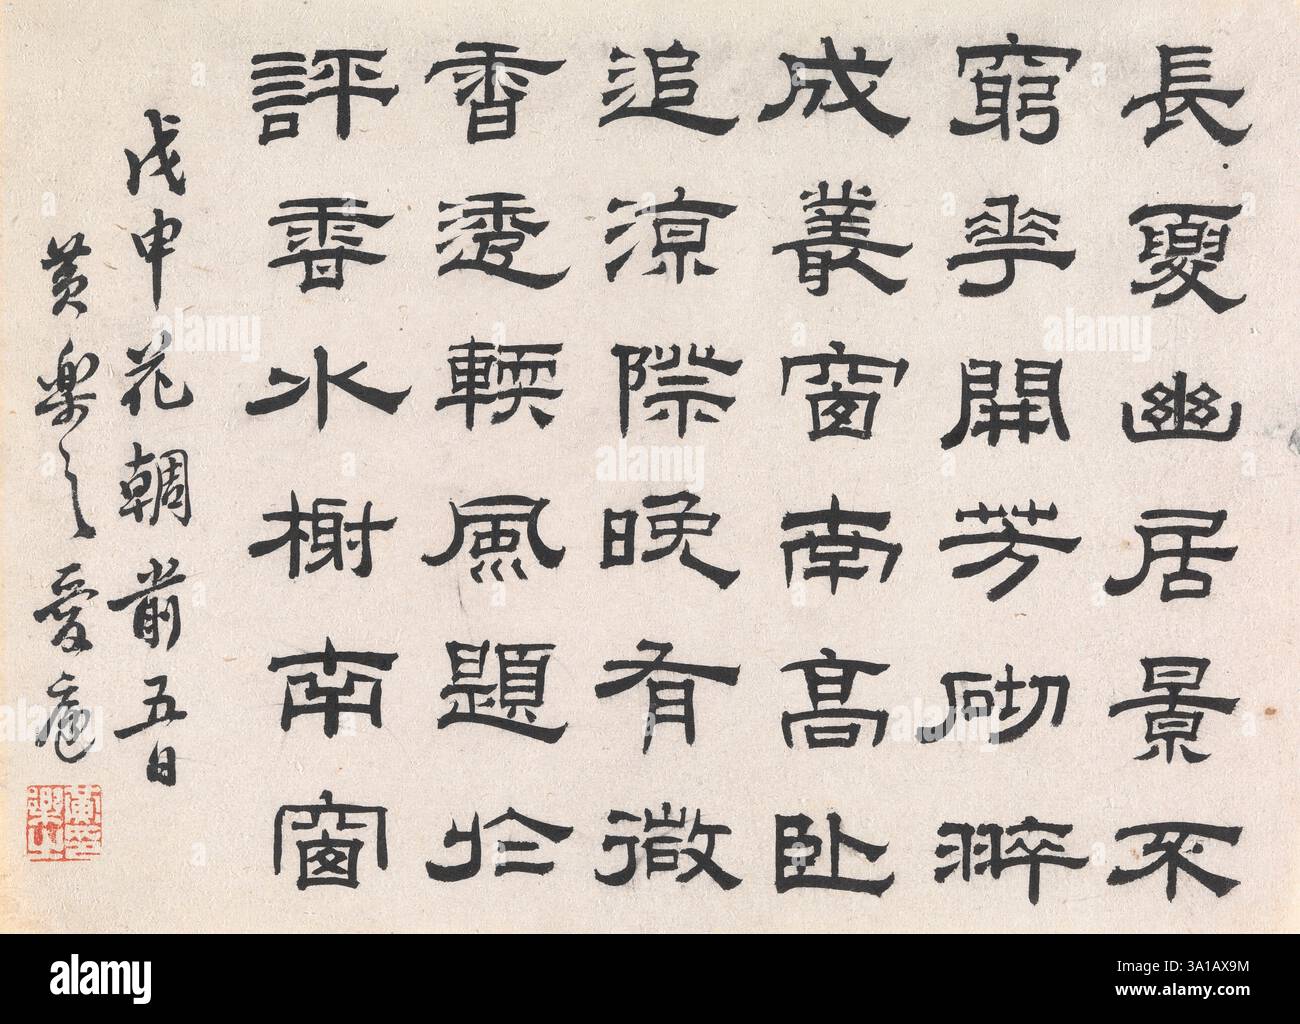 長夏幽居景不
窮花開芳砌翠
成叢窗南高臥
追涼際晚有微
香透輭風題於
評香水榭南窗
戊申花朝前五日
黃樂之愛廬
黃樂之印
alamy
Image ID: 3A1AX9M
www.alamy.com